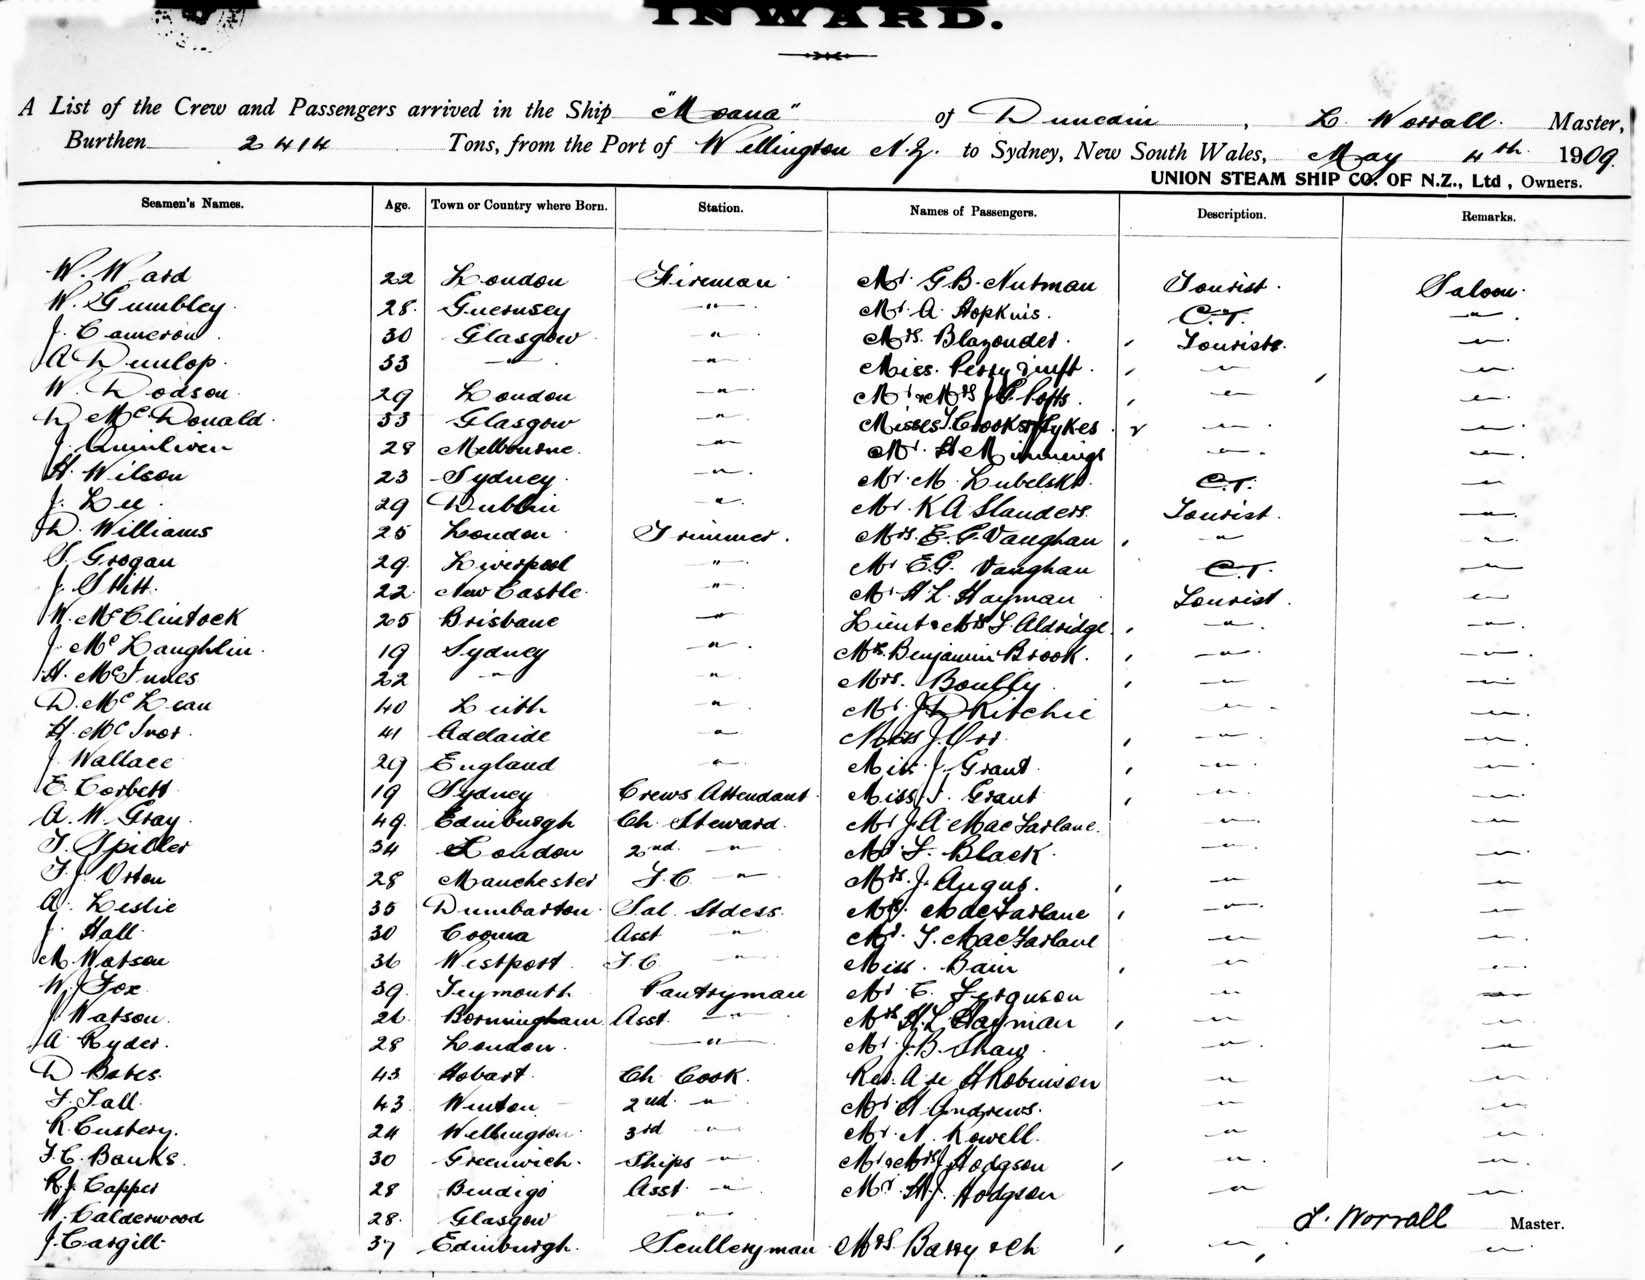 INWARD.
A List of the Crew and Passengers arrived in the Ship "Moana" of Dunedin, L. Worrall. Master,
Burthen 2414 Tons, from the Port of Wellington N.Z. to Sydney, New South Wales, May 4th 1909.
UNION STEAM SHIP CO. OF N.Z., Ltd, Owners.
Seamen's Names. Age. Town or Country where Born. Station. Names of Passengers. Description. Remarks.
W. Ward 22 London Fireman Mr G B. Nutman Tourist. Saloon.
W. Gumbley. 28. Guernsey " Mr. A. Hopkins. C.T. "
J. Cameron 30 Glasgow " Mrs. Blazouder. , Tourists. "
A Dunlop. 33 " " Miss. Perry , " "
W. Dodson 29 London " Mr & Mrs J G. Potts. , " "
D McDonald. 33 Glasgow " Misses Crooks & Sykes " "
J. Quinliven 28 Melbourne. " Mr. H Mimmings " "
H. Wilson 23 Sydney. " Mr. M. Lubelski. C.T. "
J. Lee 29 Dublin " Mr. K A Slanders. Tourist. "
D. Williams 25 London Trimmer. Mrs. E. G. Vaughan , " "
S. Grogan 29. Liverpool " Mr E.G. Vaughan C.T. "
J. Stitt. 22 New Castle " Mr H. L. Hayman Tourist. "
W. McClintock 25 Brisbane " Lieut & Mrs L. Aldridge. , " "
J. McLaughlin. 19 Sydney " Mrs. Benjamin Brook. , " "
H. McInnes 22 " " Mrs. Boulby. , " "
D. McLean 40 Leith " Mr. J D Ritchie " "
H. McIvor. 41 Adelaide " Miss J. Orr , " "
J Wallace 29 England " Miss. J. Grant. , " "
E. Corbett 19 Sydney Crews Attendant Miss J. Grant , " "
A. W. Gray. 49. Edinburgh Ch. Steward. Mr J. A. MacFarlane. " "
T. Spiller 34 London 2nd. " Mr. L. Black. " "
F. J. Orton 28 Manchester F. C. " Mrs. J. Angus. , " "
A. Leslie 35 Dumbarton Sal. Stdess. Mrs. MacFarlane , " "
J. Hall. 30 Cooma Asst " Mr. T. MacFarlane " "
M. Watson 36 Westport. F. C. " Miss. Bain , " "
W. J. Fox. 39. Teymouth Pantryman Mr. C. Ferguson " "
J. Watson. 26 Bormingham Asst. " Mrs H. L. Hayman , " "
A Ryder. 28 London. " Mr. J. B. Shaw. " "
D Bates. 43. Hobart. Ch. Cook. Rev. A de H Robinson " "
F. Tall. 43. Winton. 2nd. " Mr. H Andrews. " "
R. Custery. 24 Wellington. 3rd " Mr. N. Kowell. " "
F. C. Banks. 30 Greenwich. Ships " Mr & Mrs J. Hodgson , " "
R. J. Capper 28 Bendigo Asst " Mr. H. J. Hodgson " "
W. Calderwood 28. Glasgow "
L. Worrall Master.
J. Cargill. 37 Edinburgh. Scullery man Mrs Barry & Ch , " "